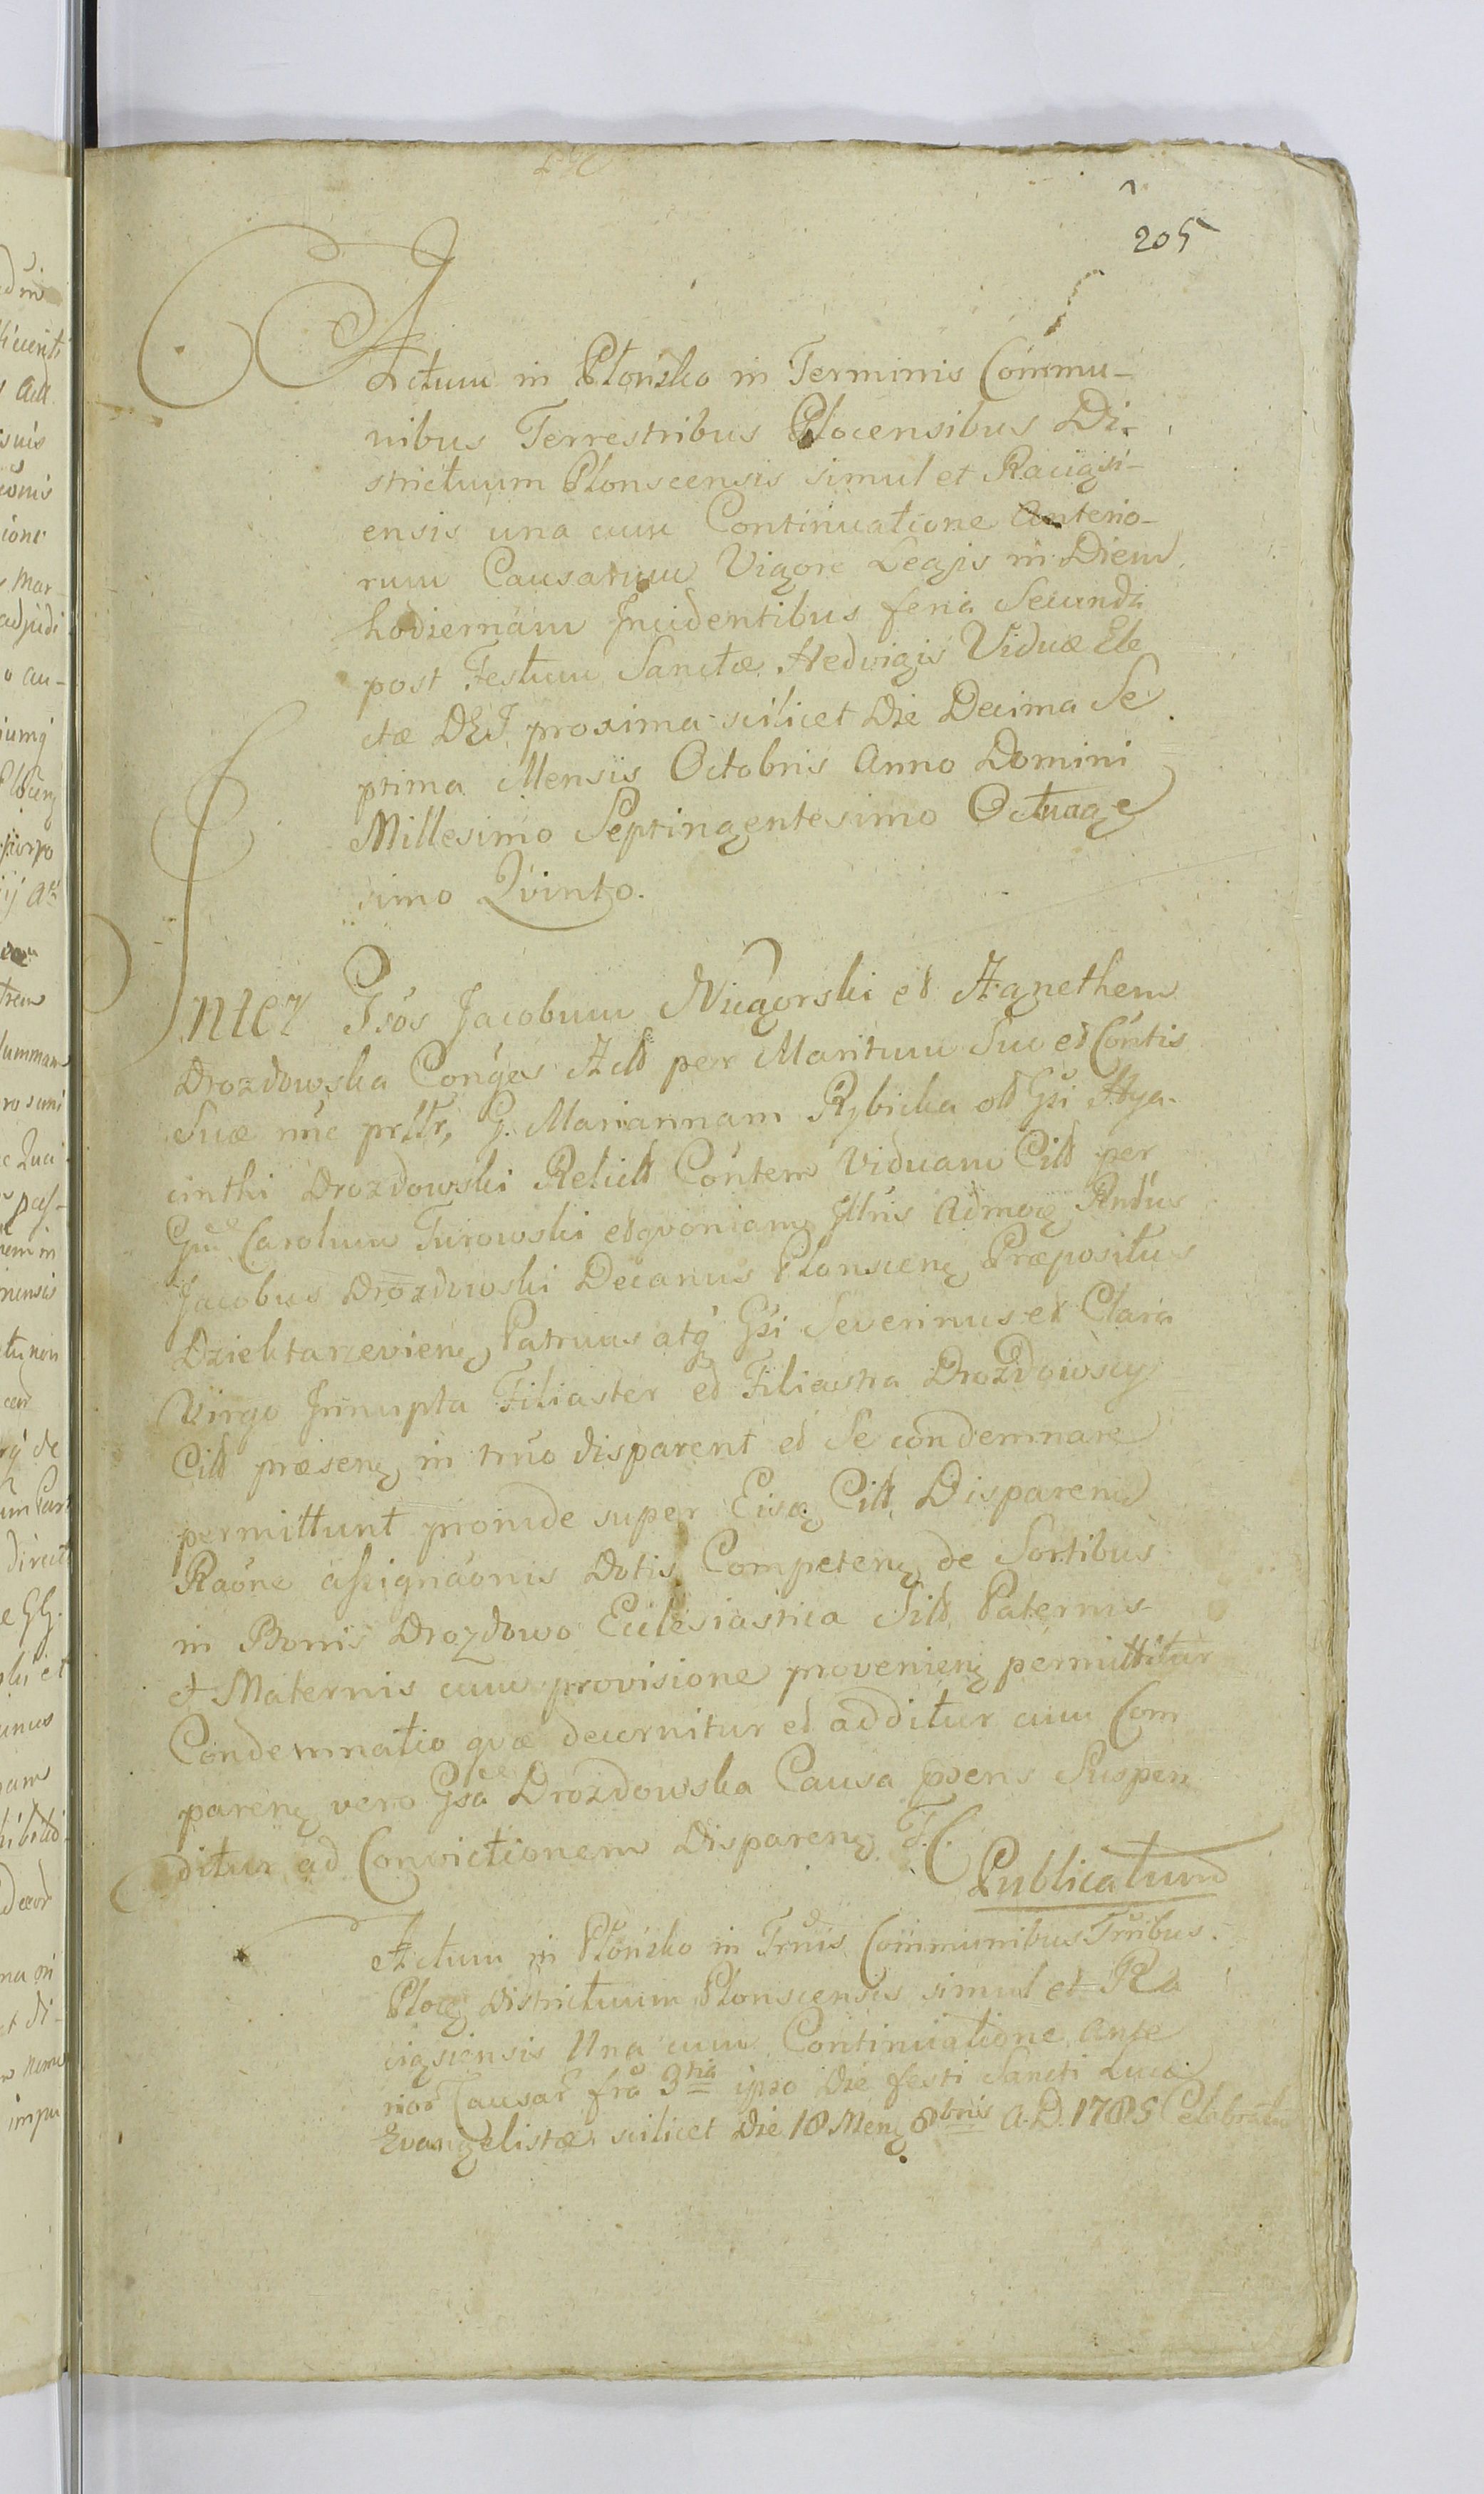 205
Actum in Płońsko in Terminis Commu-
nibus Terrestribus Plocensibus Di-
strictuum Plonscensis simul et Raciąsi-
ensis una cum Continuatione Anterio-
rum Causarum Vigore Legis in Diem
hodiernam Incidentibus feria Secunda
post Festum Sanctæ Hedvigis Viduæ Ele
ctæ DEI proxima scilicet Die Decima Se
ptima Mensis Octobris Anno Domini
Millesimo Septingentesimo Octuage
simo Qvinto.
Inter Gsos Jacobum Nicgorski et Agnethem
Drozdowska Conges Act per Maritum Suu et Contis
Suæ nunc prttr, G. Mariannam Rybicka ol Gsi Hya-
cinthi Drozdowski Relict Contem Viduam Citt per
Gm Carolum Turowski et qvoniam Illris Admog Rndus
Jacobus Drozdowski Decanus Plonscen Præpositus
Dziektarzevien Patruus atq Gsi Severinus et Clara
Virgo Innupta Filiaster et Filiastra Drozdowscy
Citt præsen in trno disparent et Se condemnare
permittunt proinde super Eisq Citt Disparen
Raône assignaônis Dotis Competen de Sortibus
in Bonis Drozdowo Ecclesiastica Sitt Paternis
et Maternis cum provisione provenien permittitur
Condemnatio qvæ decernitur et additur cum Com
paren vero Gsa Drozdowska Causa psens Suspen
ditur ad Convictionem Disparen T.C.
Publicatum
Actum in Płońsko in Trnis Communibus Trribus
Ploc Districtuum Plonscensis simul et Ra
ciąsiensis Una cum Continuatione Ante
rior Causar fra 3tia ipso Die festi Sancti Lucæ
Evangelistæ scilicet Die 18 Men 8bris A.D. 1785 Celebratu